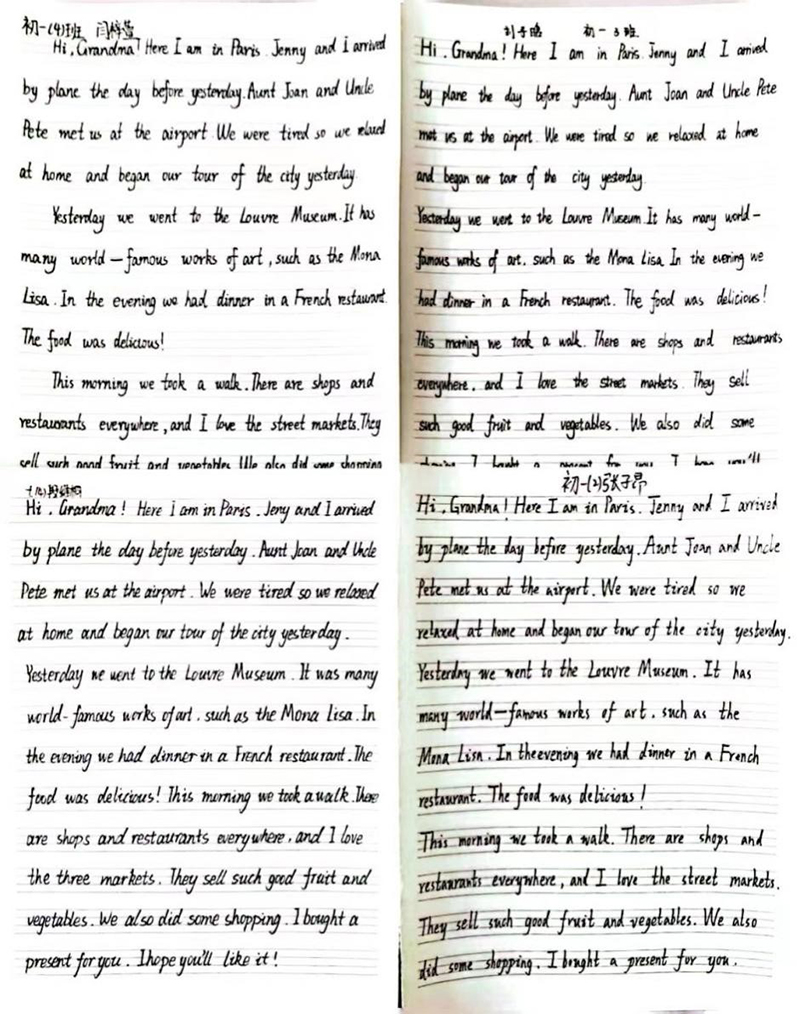 初一(4)班
Hi, Grandma! Here I am in Paris. Jenny and I arrived
by plane the day before yesterday. Aunt Joan and Uncle
Pete met us at the airport We were tired so we relaxed
at home and began our tour of the city yesterday.
Yesterday we went to the Louvre Museum. It has
many world-famous works of art, such as the Mona
Lisa. In the evening we had dinner in a French restaurant.
The food was delicious!
This morning we took a walk. There are shops and
restaurants everywhere, and I love the street markets. They
sell such good fruit and vegetables. We also did some shopping
初一 3 班
Hi. Grandma! Here I am in Paris. Jenny and I arrived
by plane the day before yesterday. Aunt Joan and Uncle Pete
met us at the airport. We were tired so we relaxed at home
and began our tour of the city yesterday.
Yesterday we went to the Louvre Museum. It has many world-
famous works of art. such as the Mona Lisa. In the evening we
had dinner in a French restaurant. The food was delicious!
This morning we took a walk. There are shops and restaurants
everywhere. and I love the street markets. They sell
such good fruit and vegetables. We also did some
I bought a present for you. I hope you'll
Hi. Grandma! Here I am in Paris. Jeny and I arrived
by plane the day before yesterday. Aunt Joan and Uncle
Pete met us at the airport. We were tired so we relaxed
at home and began our tour of the city yesterday.
Yesterday we went to the Louvre Museum. It was many
world-famous works of art. such as the Mona Lisa. In
the evening we had dinner in a French restaurant. The
food was delicious! This morning we took a walk. There
are shops and restaurants everywhere, and I love
the three markets. They sell such good fruit and
vegetables. We also did some shopping. I bought a
present for you. I hope you'll like it!
初一(2)张子昂
Hi, Grandma! Here I am in Paris. Jenny and I arrived
by plane the day before yesterday. Aunt Joan and Uncle
Pete met us at the airport. We were tired so we
relaxed at home and began our tour of the city yesterday.
Yesterday we went to the Louvre Museum. It has
many world-famous works of art. such as the
Mona Lisa. In the evening we had dinner in a French
restaurant. The food was delicious!
This morning we took a walk. There are shops and
restaurants everywhere, and I love the street markets.
They sell such good fruit and vegetables. We also
did some shopping. I bought a present for you.